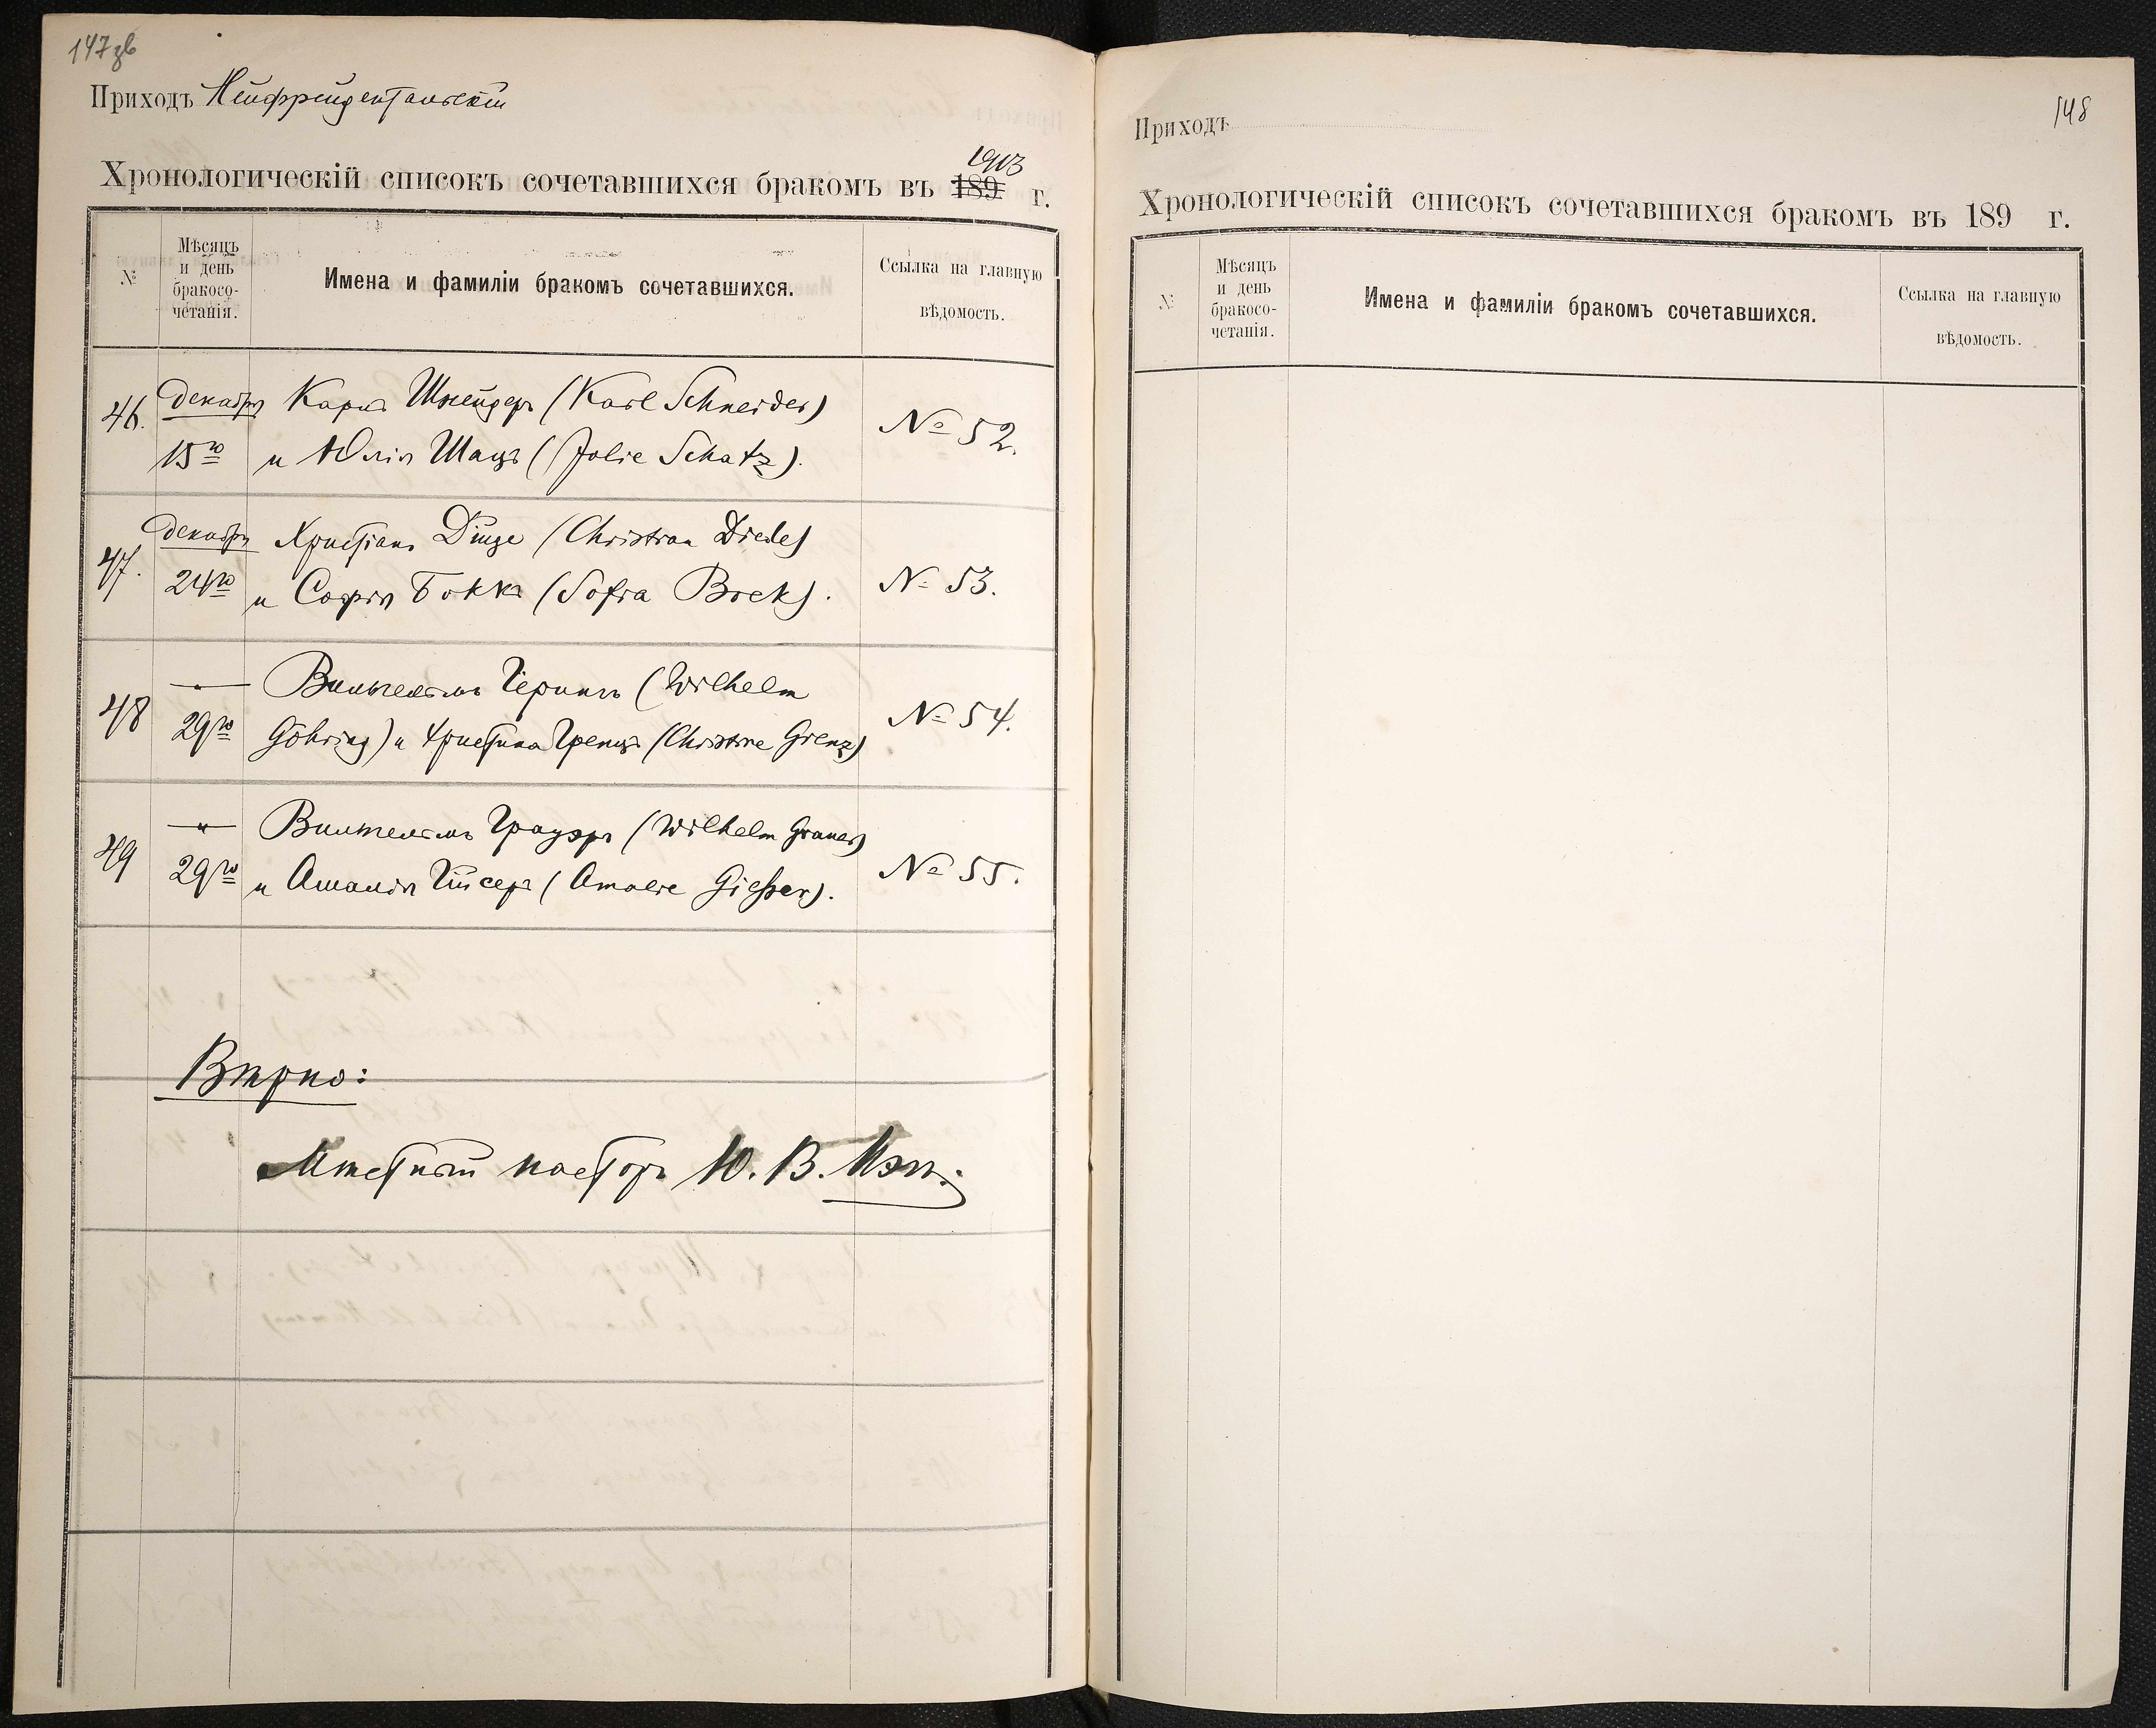 147зв
Приходъ Нейфрейдентальскій
Хронологическій списокъ сочетавшихся бракомъ въ 189 1903 г.
№
Мѣсяцъ
и день
бракосо-
четанія.
Имена и фамиліи бракомъ сочетавшихся.
Ссылка на главную
вѣдомость.
46. Декабря Карлъ Шнейдеръ (Karl Schneider) № 52.
15го и Юлія Шацъ (Jolie Schatz).
47. Декабря Христіанъ Диде (Christian Diede)
24го и Софія Боккъ (Sofia Bock). № 53.
48 — " — Вильгельмъ Герингъ (Wilhelm № 54.
29го Göhring) и Христина Гренцъ (Christine Grenz)
49 — " — Вильгельмъ Грауэръ (Wilhelm Grauer)
29го и Амалія Гисеръ (Amalie Gießer). № 55.
Вѣрно:
Мѣстный пасторъ Ю. В.
148
Приходъ
Хронологическій списокъ сочетавшихся бракомъ въ 189 г.
№
Мѣсяцъ
и день
бракосо-
четанія.
Имена и фамиліи бракомъ сочетавшихся.
Ссылка на главную
вѣдомость.